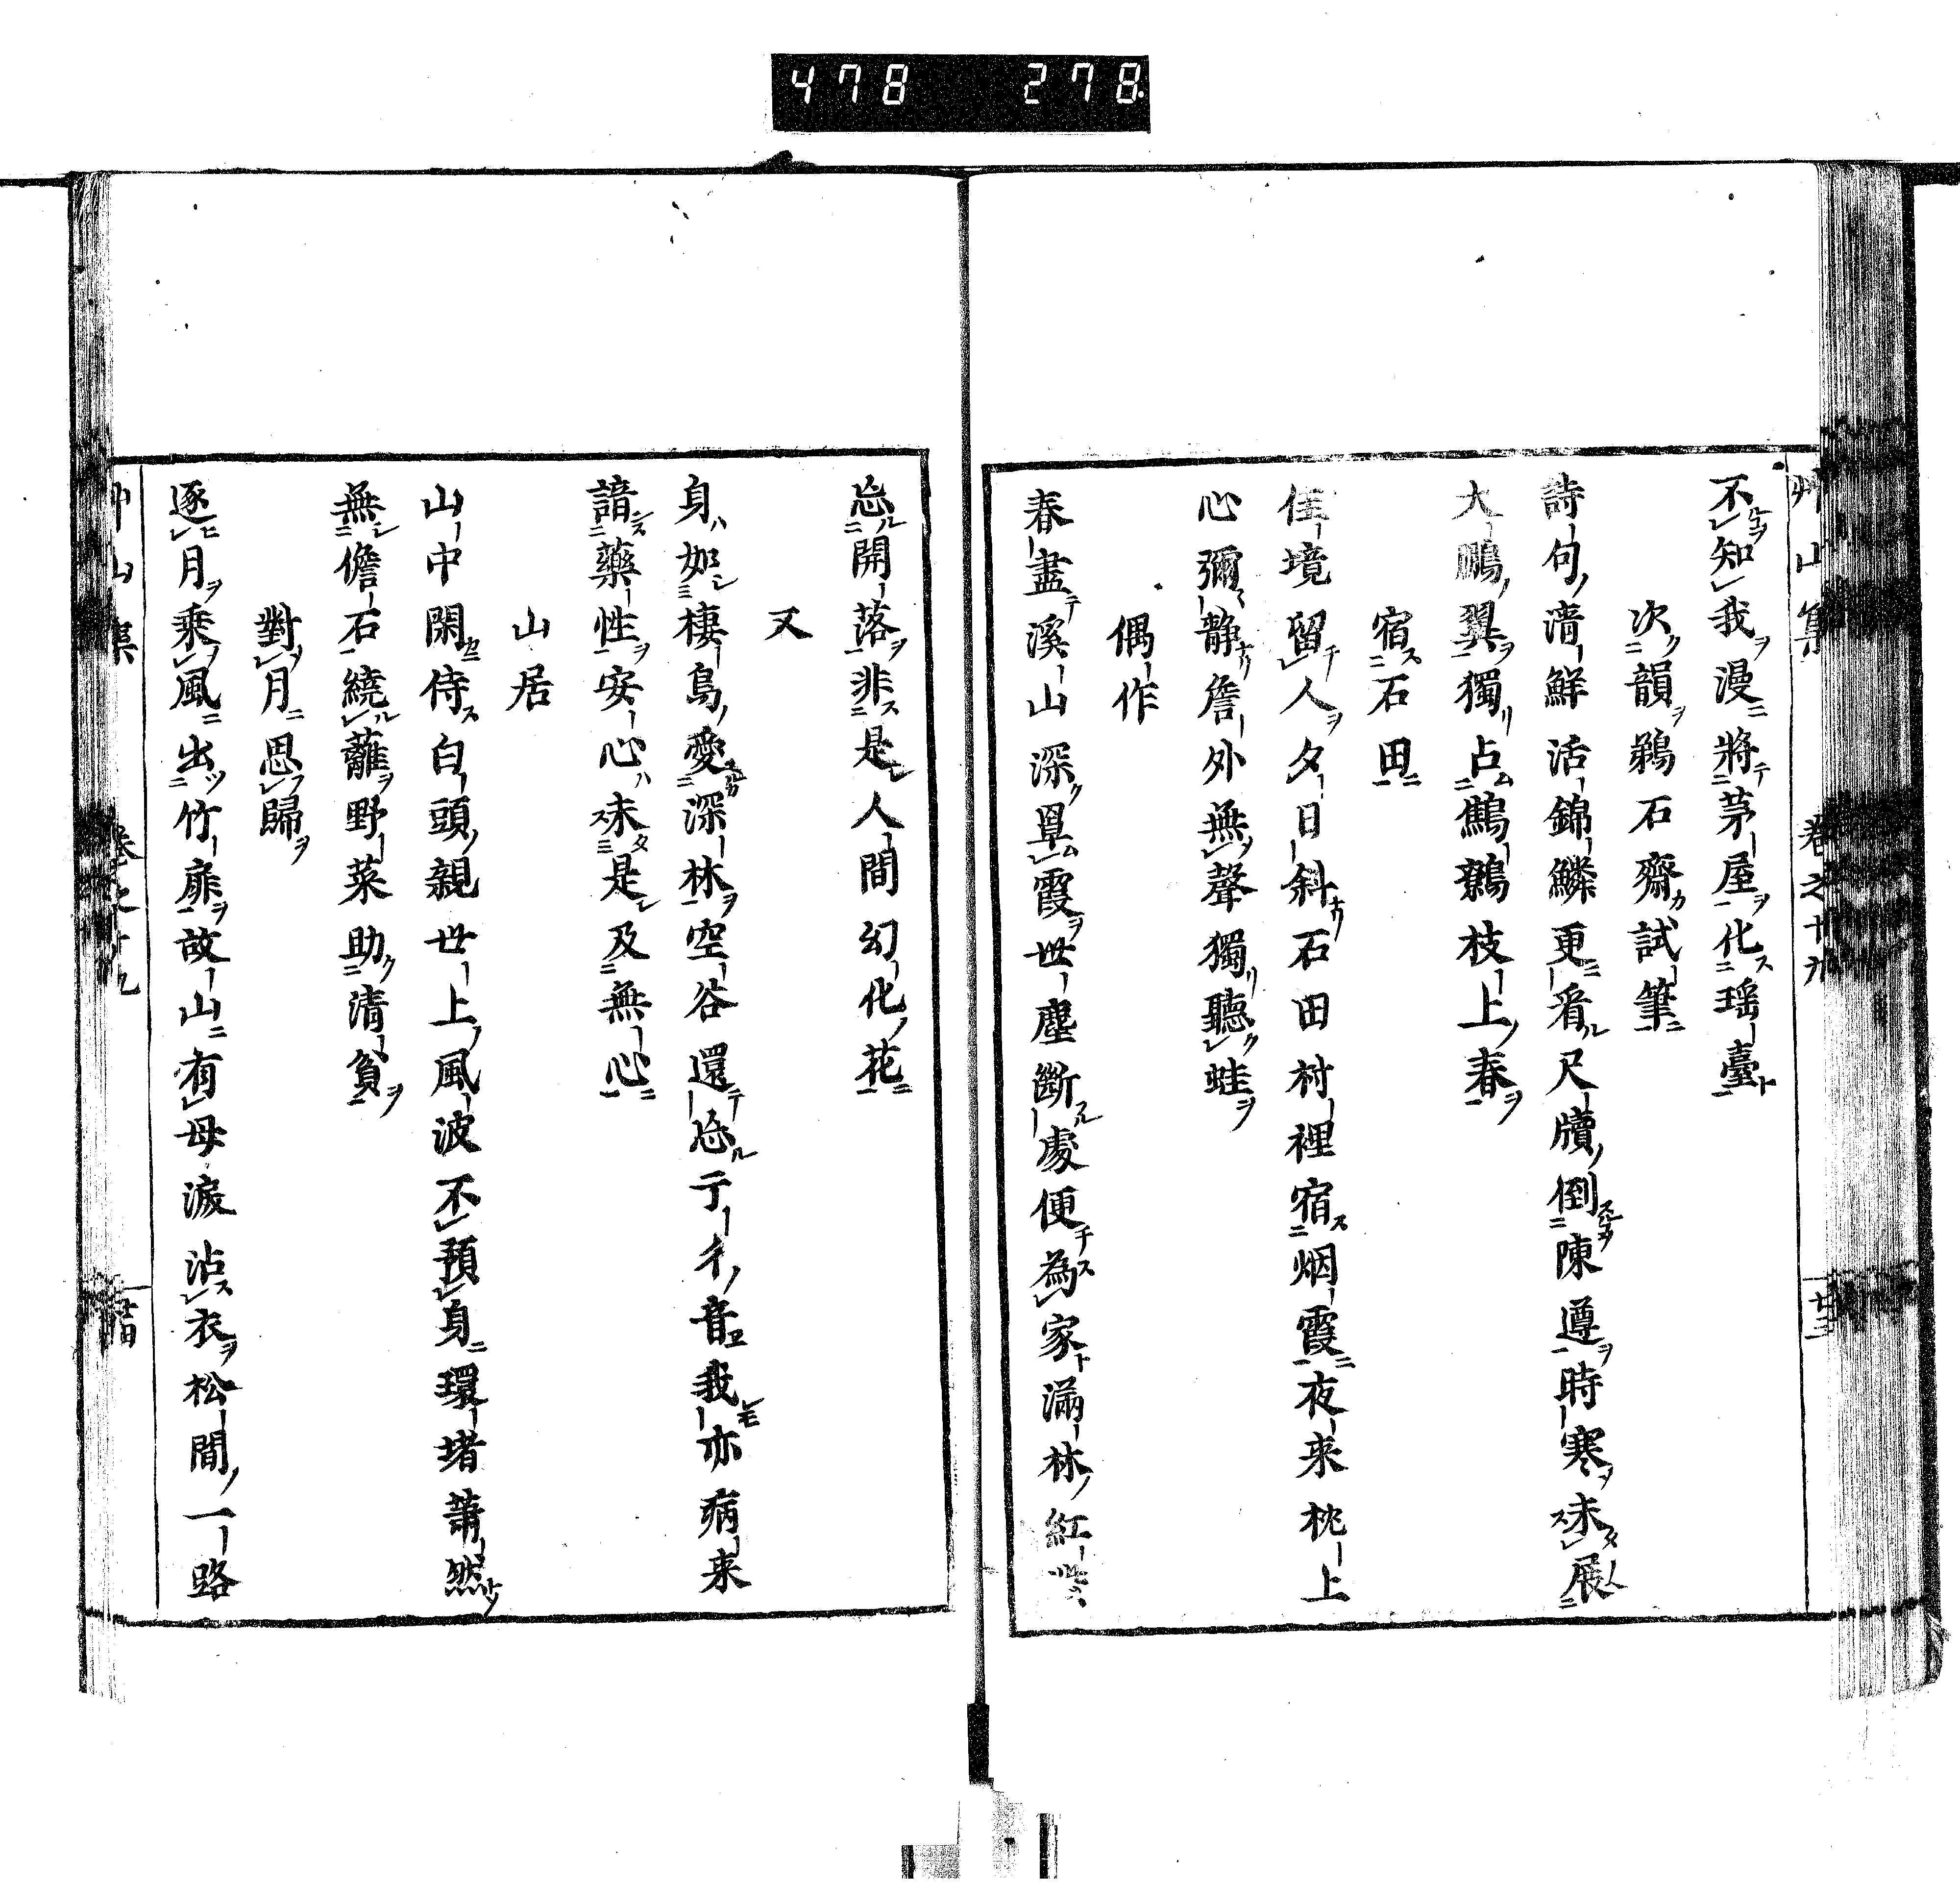 478 278
艸山集 卷之十九 廿三
不知我漫將茅屋化瑶臺
次韻鵜石齋試筆
詩句清鮮活錦鱗更看尺牘倒陳遵時寒未展
大鵬翼獨占鷦鷯枝上春
宿石田
佳境留人夕日斜石田村裡宿烟霞夜来枕上
心彌静簷外無聲獨聽蛙
偶作
春盡溪山深罩霞世塵斷處便為家滿林紅紫
忘開落非是人間幻化花
又
身如棲鳥愛深林空谷還忘亍彳音我亦病来
諳藥性安心未是及無心
山居
山中閑侍白頭親世上風波不預身環堵蕭然
無儋石繞蘺野菜助清貧
對月思歸
逐月乘風出竹扉故山有母淚沾衣松間一路
山集 卷之十九